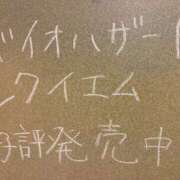 バイオハザード
レクイエム
好評発売中